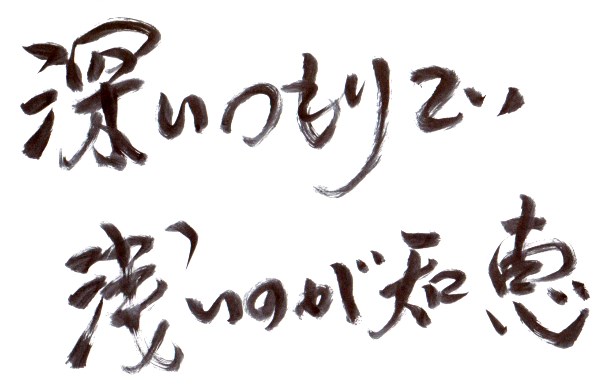 深いつもりで
浅いのが知恵